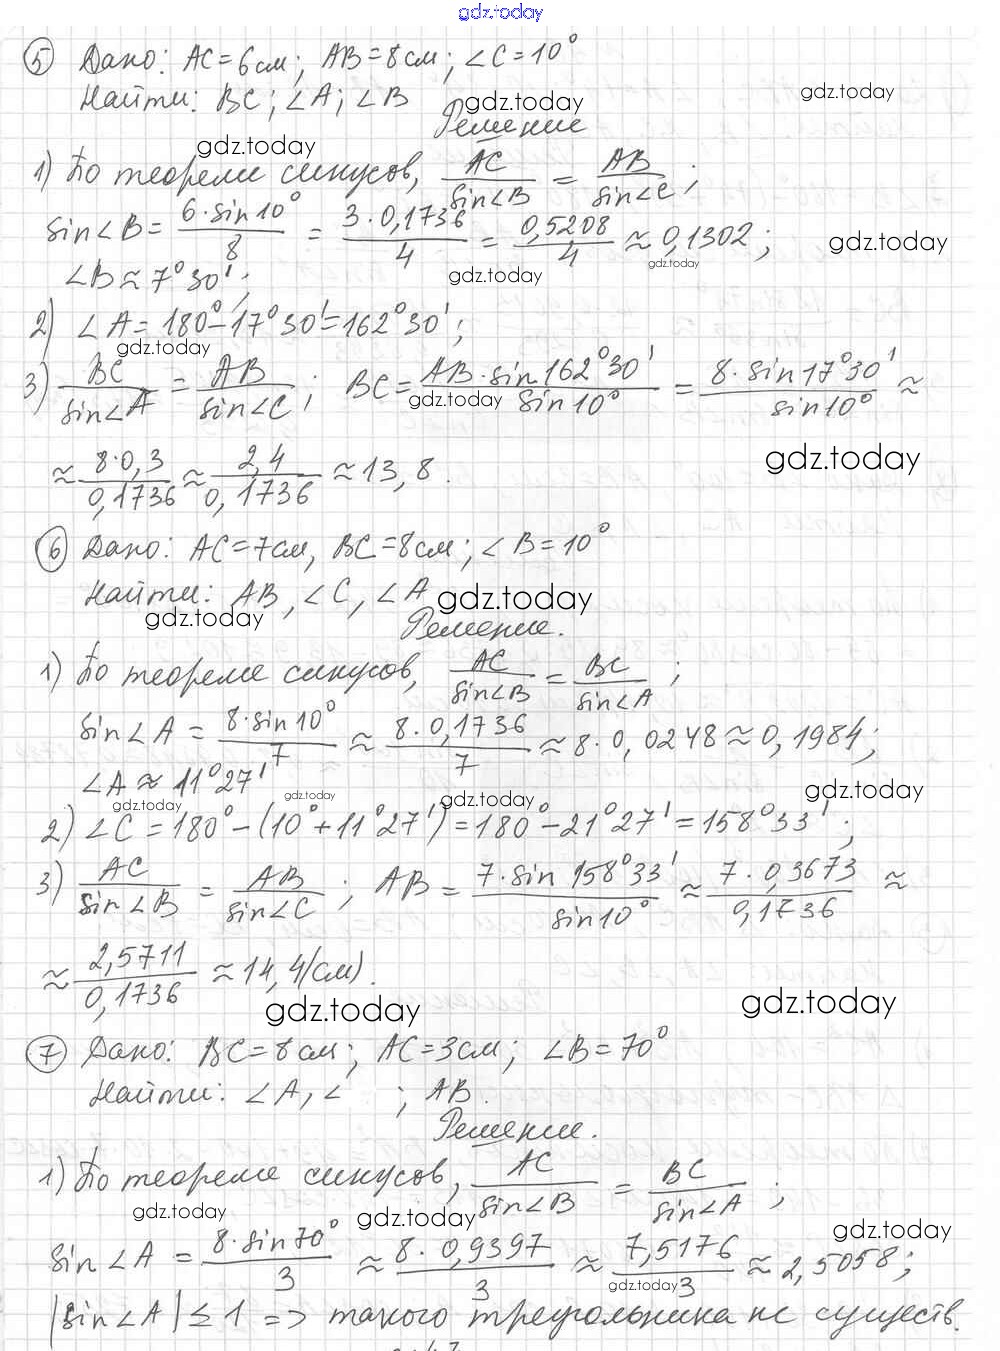 gdz.today
5 Дано: AC=6см; AB=8см; ∠C=10°
Найти: BC; ∠A; ∠B gdz.today gdz.today
Решение
gdz.today
1) По теореме синусов, AC/sin∠B = AB/sin∠C;
sin∠B = 6·sin10°/8 = 3·0,1736/4 = 0,5208/4 ≈ 0,1302; gdz.today
∠B ≈ 7°30'; gdz.today gdz.today
2) ∠A = 180°-17°30'=162°30';
gdz.today
3) BC/sin∠A = AB/sin∠C; BC = AB·sin162°30'/sin10° = 8·sin17°30'/sin10° ≈
gdz.today
≈ 8·0,3/0,1736 ≈ 2,4/0,1736 ≈ 13,8. gdz.today
6 Дано: AC=7см, BC=8см; ∠B=10°
Найти: AB, ∠C, ∠A gdz.today
gdz.today Решение.
1) По теореме синусов, AC/sin∠B = BC/sin∠A;
sin∠A = 8·sin10°/7 ≈ 8·0,1736/7 ≈ 8·0,0248 ≈ 0,1984;
∠A ≈ 11°27'
gdz.today gdz.today gdz.today gdz.today
2) ∠C = 180°-(10°+11°27')=180°-21°27'=158°33';
3) AC/sin∠B = AB/sin∠C; AB = 7·sin158°33'/sin10° ≈ 7·0,3673/0,1736 ≈
≈ 2,5711/0,1736 ≈ 14,4(см).
gdz.today gdz.today
7 Дано: BC=8см; AC=3см; ∠B=70°
Найти: ∠A, ∠ ; AB.
Решение.
1) По теореме синусов, AC/sin∠B = BC/sin∠A;
gdz.today gdz.today gdz.today
sin∠A = 8·sin70°/3 ≈ 8·0,9397/3 ≈ 7,5176/3 ≈ 2,5058;
gdz.today
|sin∠A| ≤ 1 => такого треугольника не существ.